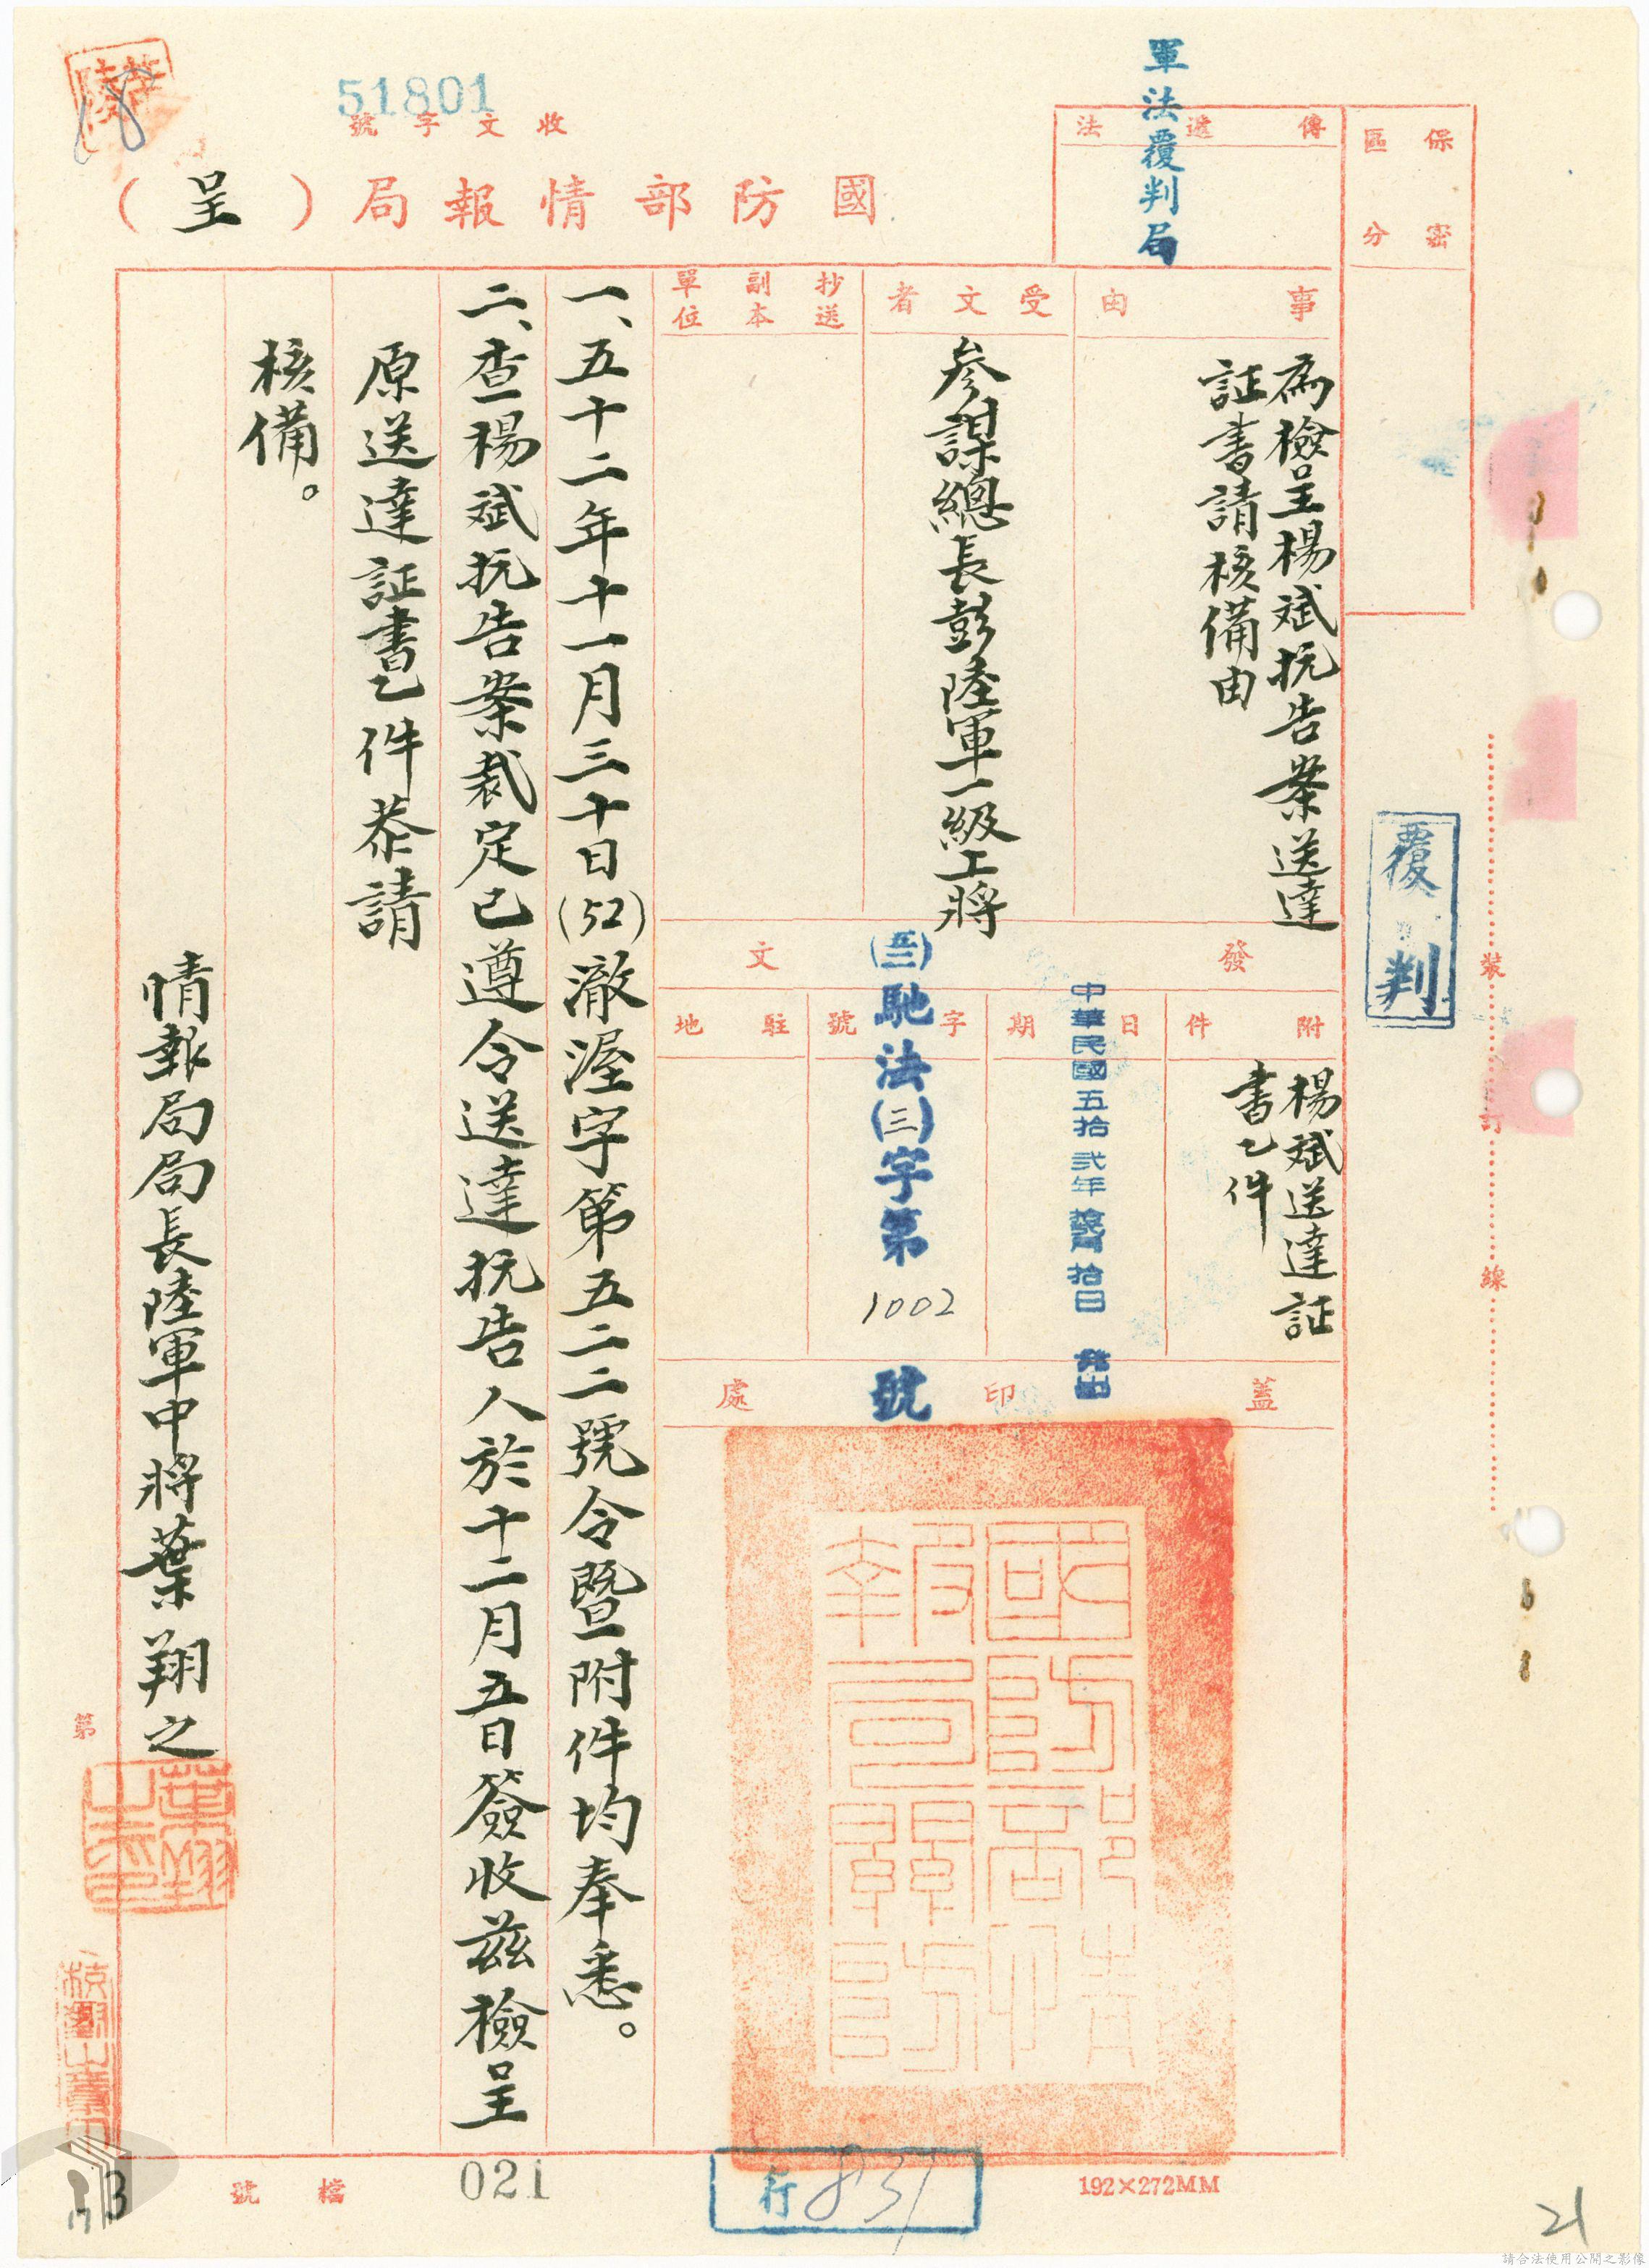 51801
收文字號
國防部情報局（呈）
保密區分
傳遞法
軍法覆判局
事由
為檢呈楊斌抗告案送達
証書請核備由
受文者
參謀總長彭陸軍一級上將
抄送副本單位
發文
附件
楊斌送達証
書乙件
日期
中華民國五拾貳年拾貳月拾日發出
字號
(五二)馳法(三)字第1002號
駐地
蓋印處
國防部情報局關防
一、五十二年十一月三十日(52)澈渥字第五二二號令暨附件均奉悉。
二、查楊斌抗告案裁定已遵令送達抗告人於十二月五日簽收茲檢呈
原送達証書乙件恭請
核備。
情報局局長陸軍中將葉翔之
葉翔之印
覆判
裝訂線
第
檔號
021
行831
192×272MM
13
21
請合法使用公開之影像